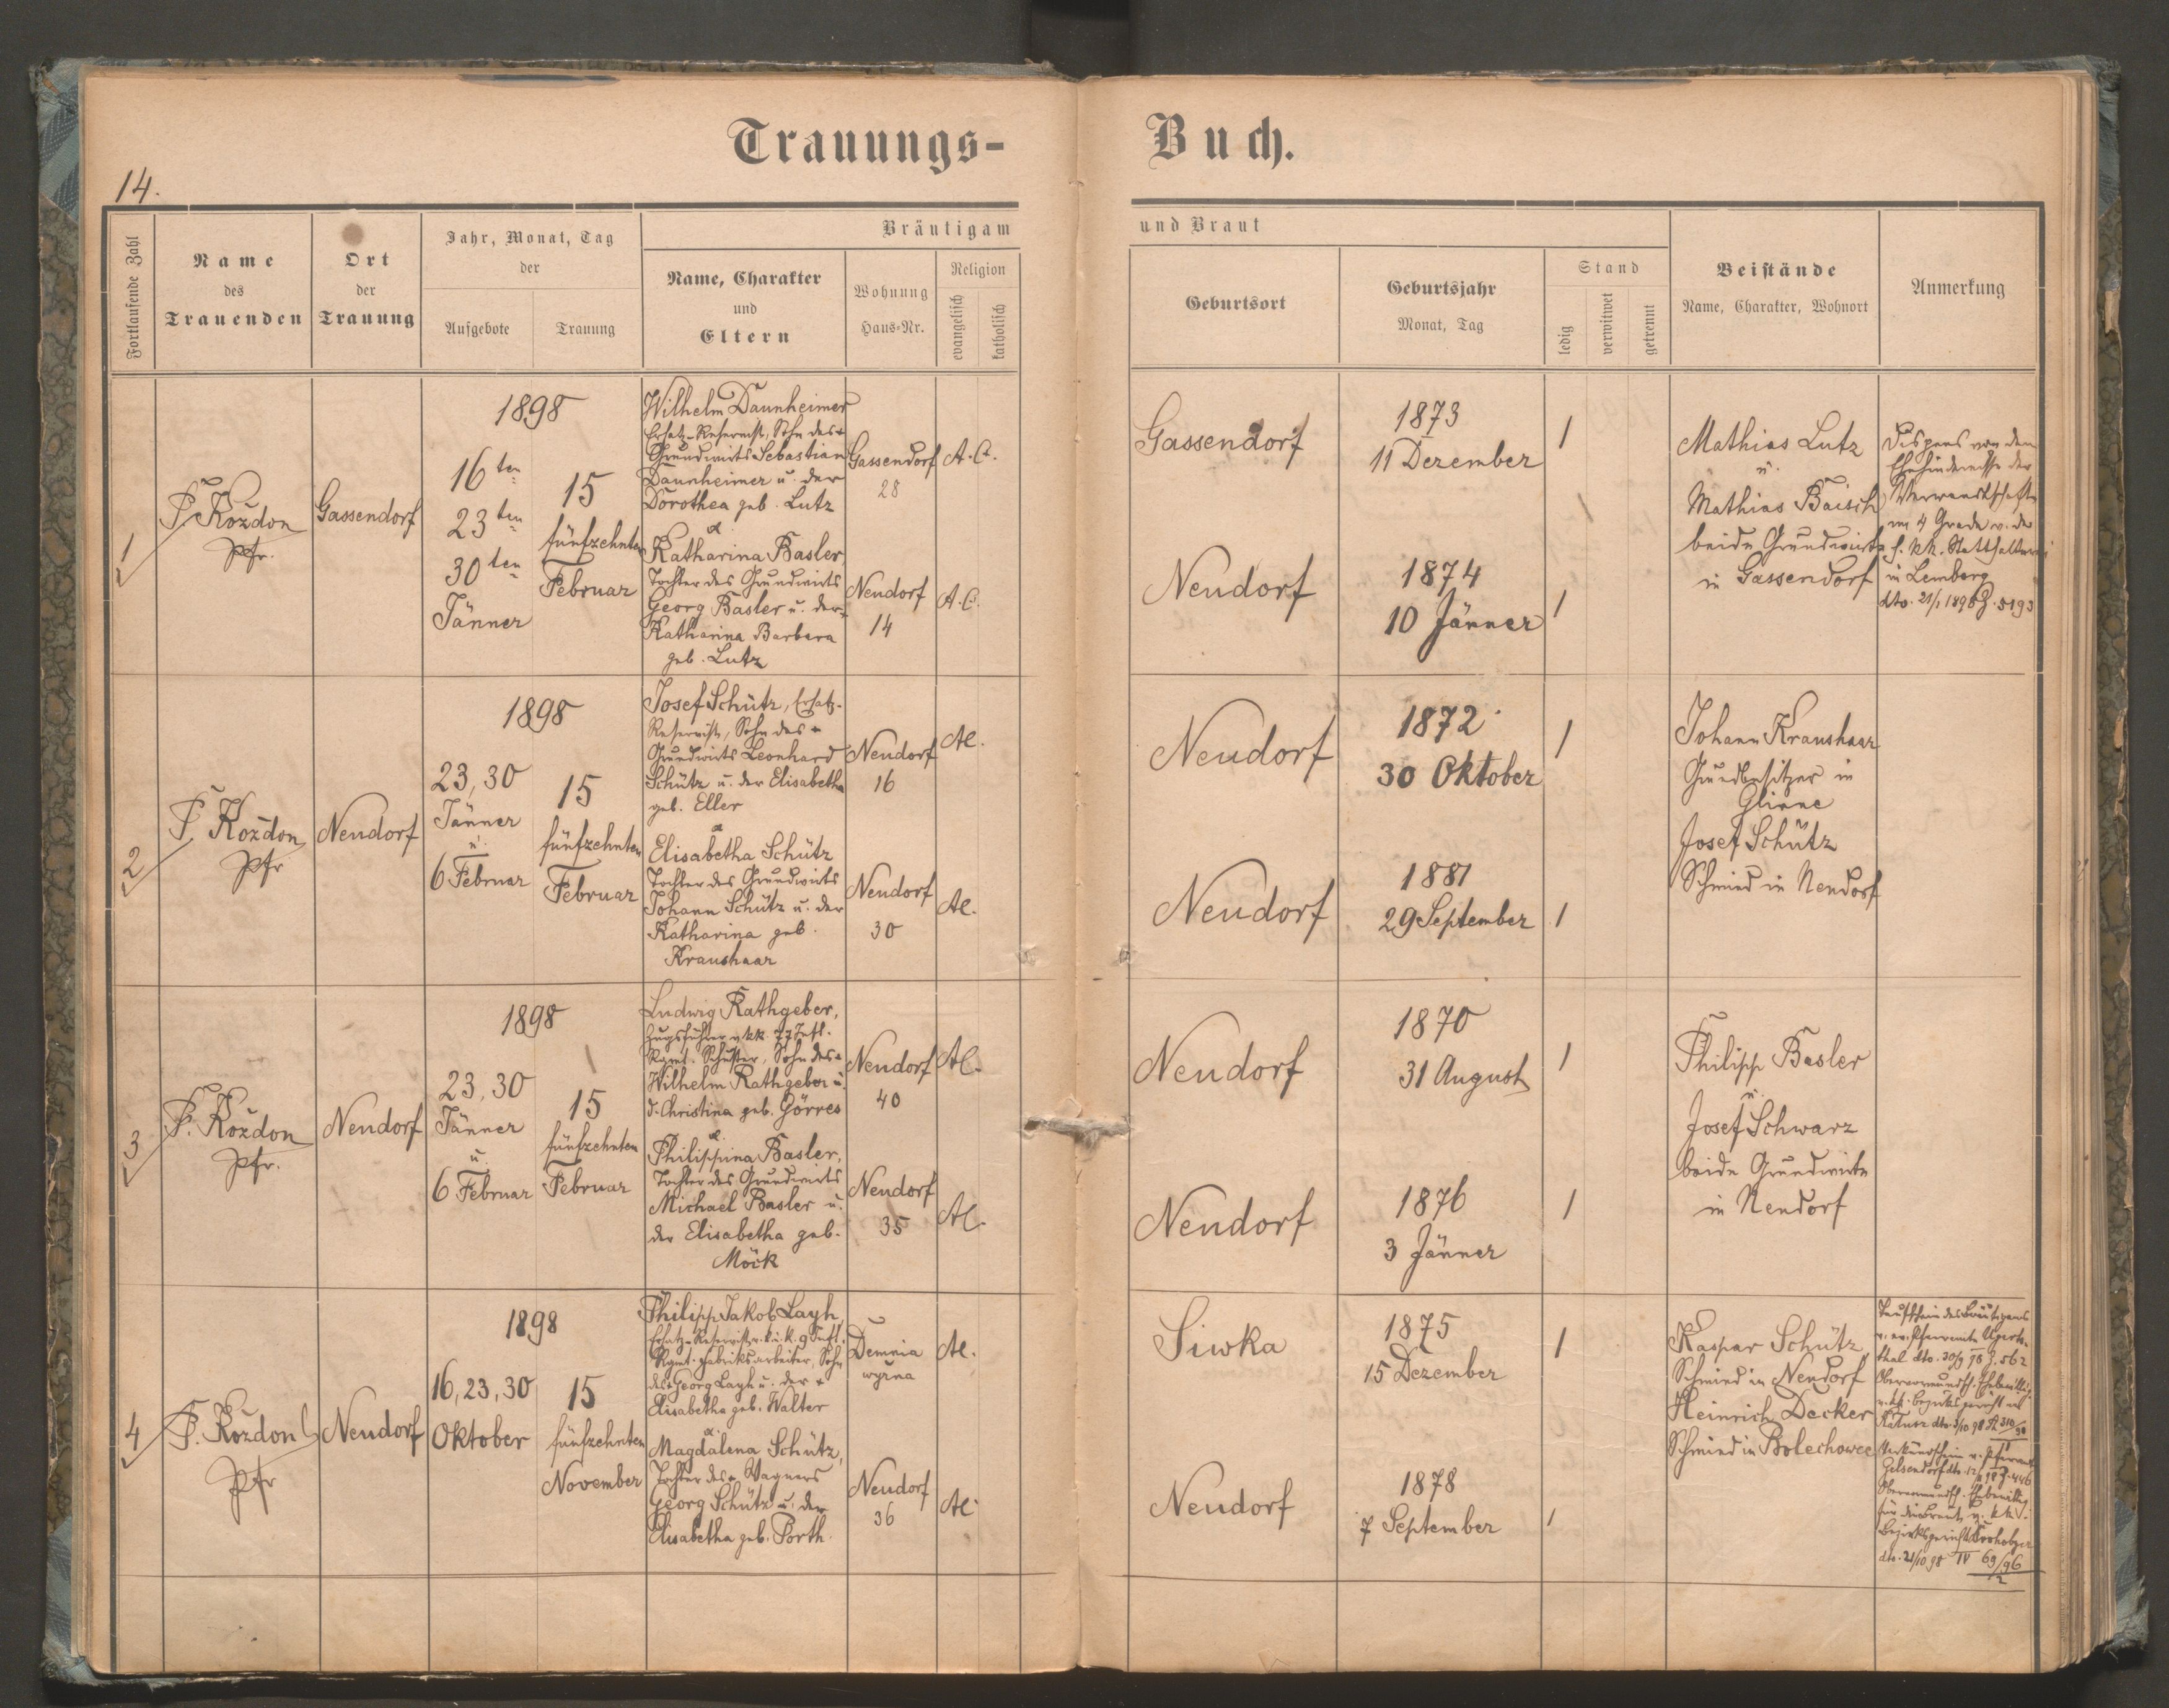 Trauungs-
Buch.
14.
Fortlaufende Zahl
Name
des
Trauenden
Ort
der
Trauung
Jahr, Monat, Tag
der
Aufgebote
Trauung
Bräutigam
Name, Charakter
und
Eltern
Wohnung
Haus-Nr.
Religion
evangelisch
katholisch
und Braut
Geburtsort
Geburtsjahr
Monat, Tag
Stand
ledig
verwitwet
getrennt
Beistände
Name, Charakter, Wohnort
Anmerkung
1
F. Kozdon
Pfr.
Gassendorf
1898
16ten
23ten
30ten
Jänner
15
fünfzehnten
Februar
Wilhelm Daunheimer
Ersatz-Reservist, Sohn des +
Grundwirts Sebastian
Daunheimer u. der
Dorothea geb. Lutz
Gassendorf
28
A.C.
&
Katharina Basler,
Tochter des Grundwirts
Georg Basler u. der +
Katharina Barbara
geb. Lutz
Neudorf
14
A.C.
Gassendorf
1873
11 Dezember
1
Neudorf
1874
10 Jänner
1
Mathias Lutz
u.
Mathias Baisch
beide Grundwirte
in Gassendorf
Dispens von dem
Ehehindernisse der
Verwandtschaft
im 4 Grade v. der
h. kk. Statthalterei
in Lemberg
dto. 21/1 1898 Z. 5193
2
F. Kozdon
Pfr
Neudorf
1898
23, 30
Jänner
u.
6 Februar
15
fünfzehnten
Februar
Josef Schütz, Ersatz-
Reservist, Sohn des +
Grundwirts Leonhard
Schütz u. der Elisabetha
geb. Eller
Neudorf
16
AC.
&
Elisabetha Schütz
Tochter des Grundwirts
Johann Schütz u. der
Katharina geb.
Kraushaar
Neudorf
30
AC.
Neudorf
1872
30 Oktober
1
Neudorf
1881
29 September
1
Johann Kraushaar
Grundbesitzer in
Glinne
Josef Schütz
Schmied in Neudorf
3
F. Kozdon
Pfr.
Neudorf
1898
23, 30
Jänner
u.
6 Februar
15
fünfzehnten
Februar
Ludwig Rathgeber,
Zugsführer v. kk. 77 Inft.
Rgmt. Schuster, Sohn des +
Wilhelm Rathgeber u.
d. Christina geb. Görres
Neudorf
40
AC.
&
Philippina Basler,
Tochter des Grundwirts
Michael Basler u.
der Elisabetha geb.
Möck
Neudorf
35
AC.
Neudorf
1870
31 August
1
Neudorf
1876
3 Jänner
1
Philipp Basler
u.
Josef Schwarz
beide Grundwirte
in Neudorf
4
F. Kozdon
Pfr
Neudorf
1898
16, 23, 30
Oktober
15
fünfzehnten
November
Philipp Jakob Layh,
Ersatz-Reservist v. k. u. k. 9 Inft.
Rgmt. Fabriksarbeiter, Sohn
des + Georg Layh u. der +
Elisabetha geb. Walter
Demnia
wyżna
AC.
&
Magdalena Schütz,
Tochter des + Wagners
Georg Schütz u. der
Elisabetha geb. Porth
Neudorf
36
AC
Siwka
1875
15 Dezember
1
Neudorf
1878
7 September
1
Kaspar Schütz,
Schmied in Neudorf
Heinrich Decker
Schmied in Bolechowce
Taufschein des Bräutigams
v. ev. Pfarramte Ugarts-
thal dto. 30/9 98 Z. 562
Obervormundsch. Ehebewillig.
v. kk. Bezirksgericht in
Kałusz dto. 3/10 98
Verkündschein v. Pfarramt
Gelsendorf
Obervormundsch. Ehebewillig.
für die Braut v. kk.
Bezirksgericht Drohobycz
dto. 21/10 98 IV 69/96
2